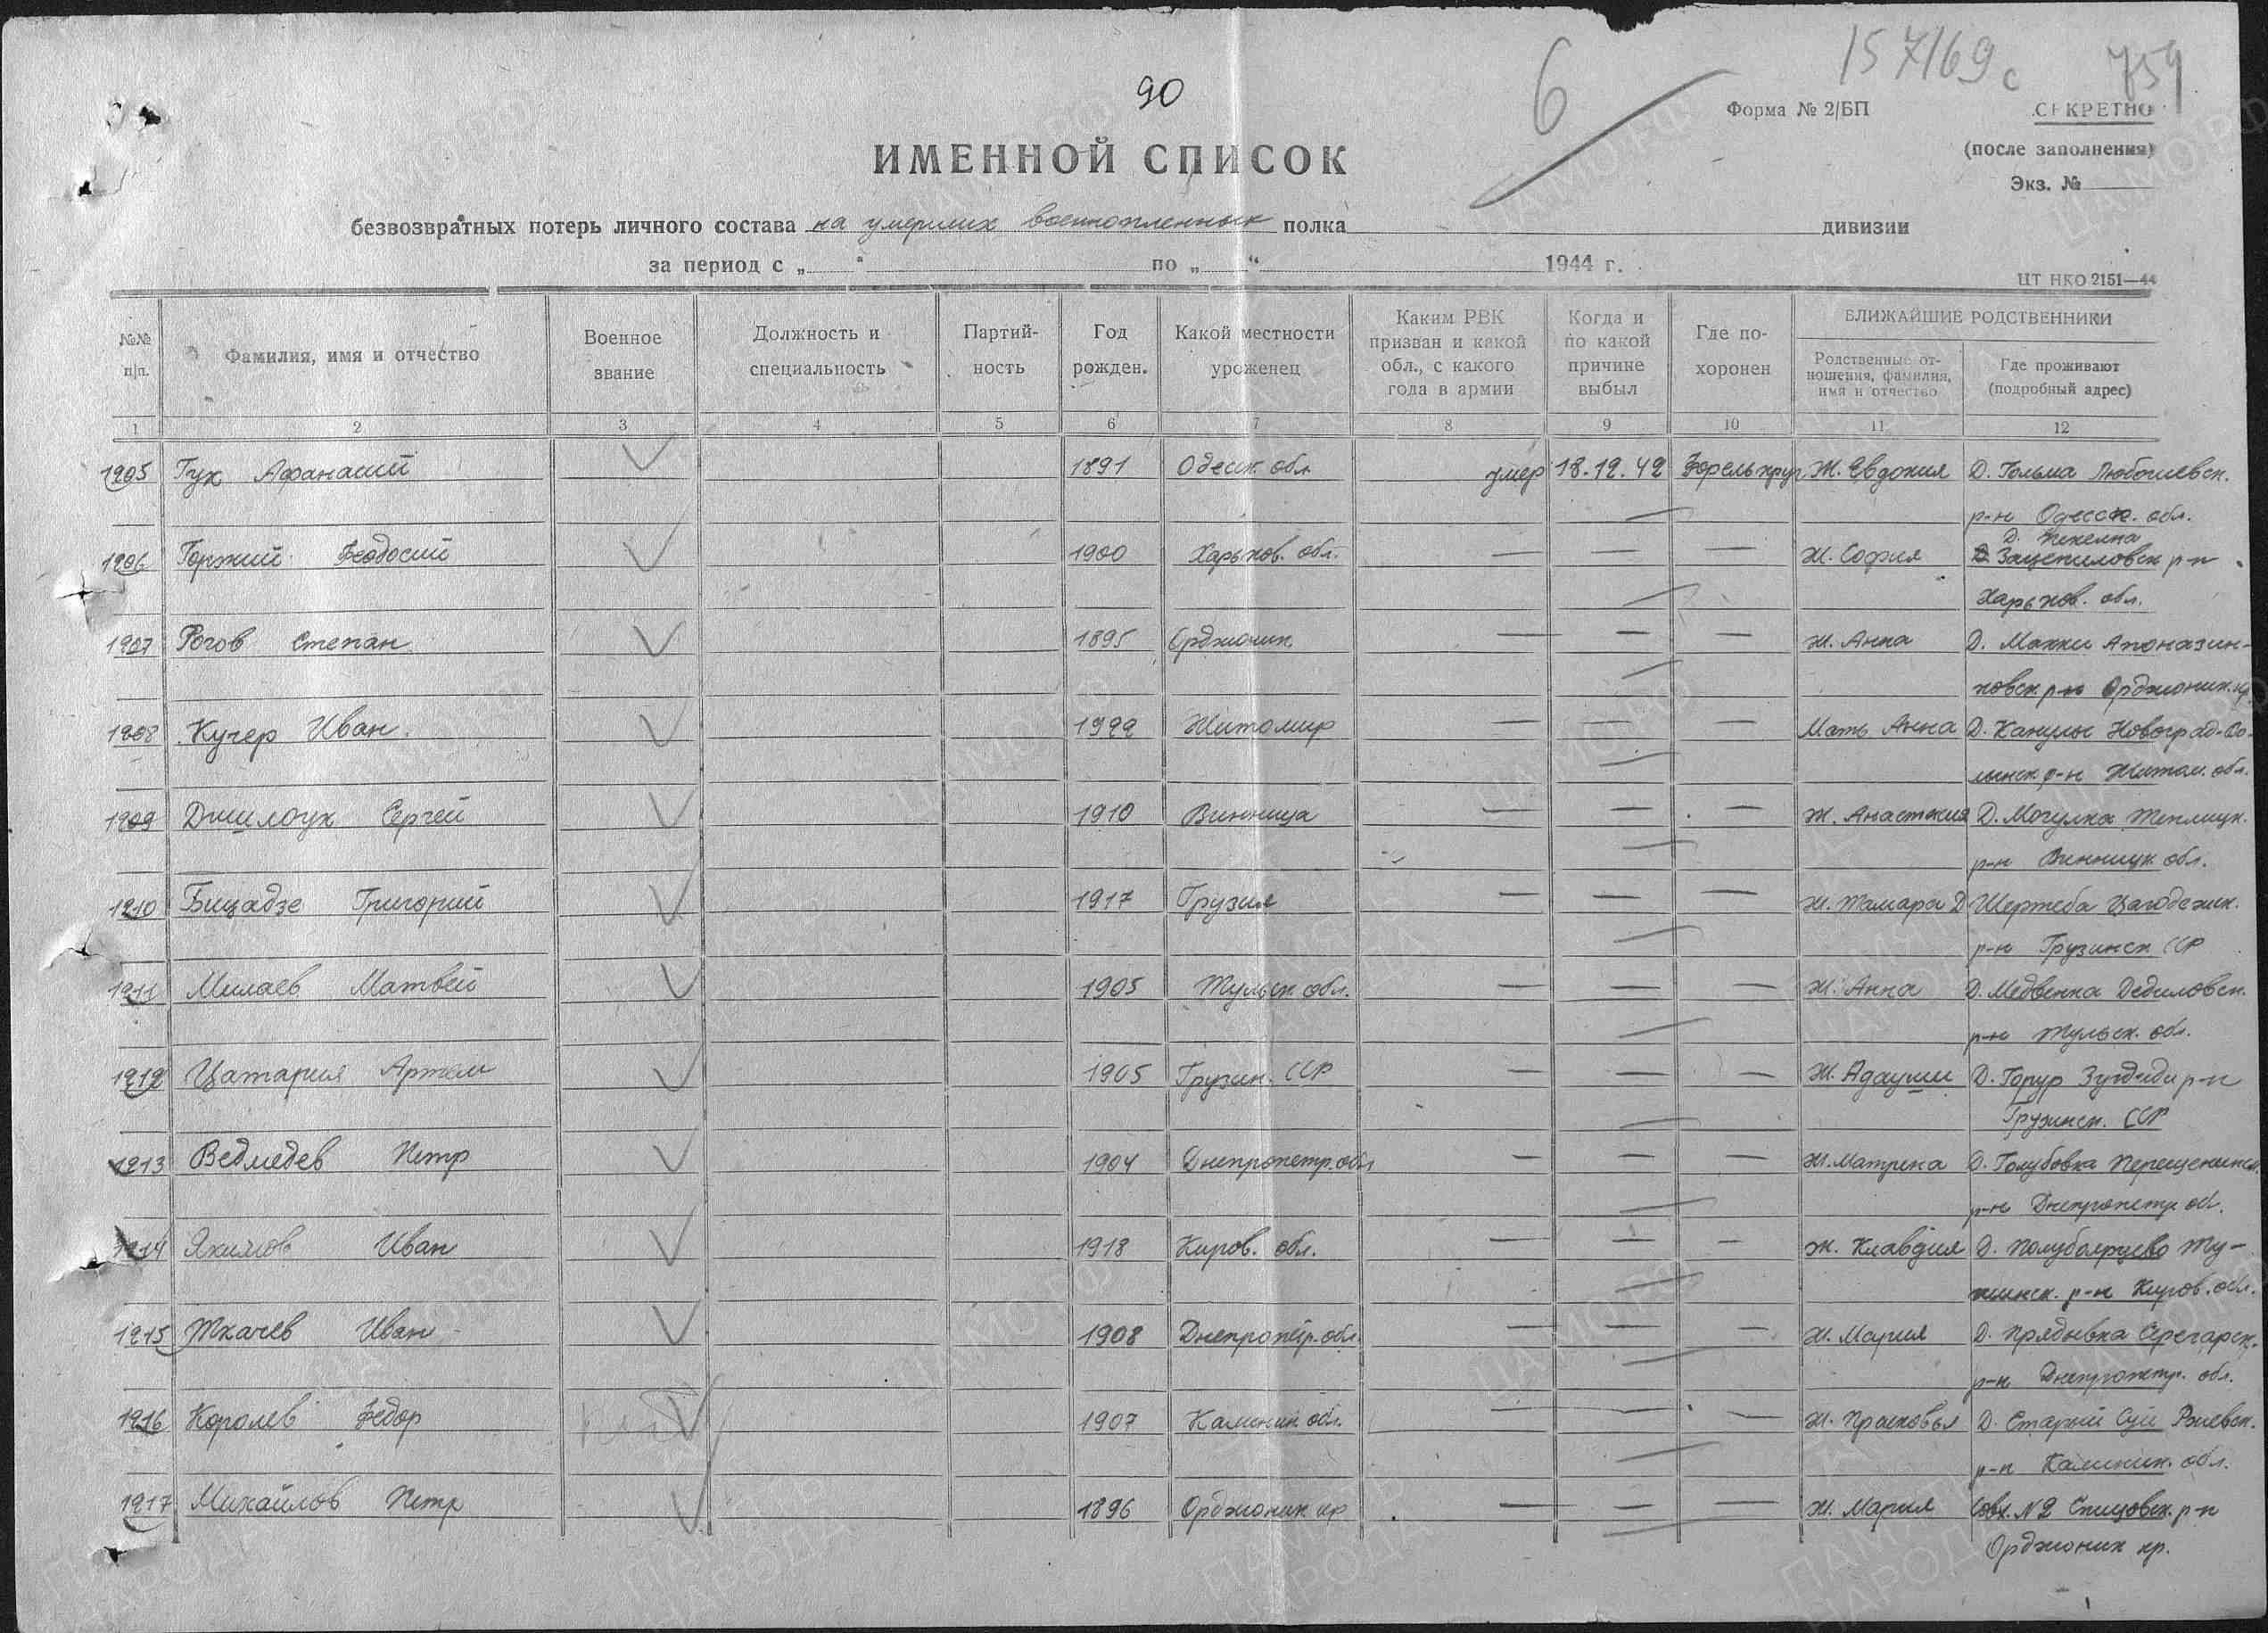 157169с 759
90 6
Форма № 2/БП СЕКРЕТНО
(после заполнения)
Экз. №
ИМЕННОЙ СПИСОК
безвозвратных потерь личного состава на умерших военнопленных полка дивизии
за период с „ “ по „ “ 1944 г.
ЦТ НКО 2151—44
№№ п/п. Фамилия, имя и отчество Военное звание Должность и специальность Партий-ность Год рожден. Какой местности уроженец Каким РВК призван и какой обл., с какого года в армии Когда и по какой причине выбыл Где по-хоронен БЛИЖАЙШИЕ РОДСТВЕННИКИ
Родственные от-ношения, фамилия, имя и отчество Где проживают (подробный адрес)
1 2 3 4 5 6 7 8 9 10 11 12
1905 Гук Афанасий 1891 Одесск. обл умер 18.12.42 Ж. Евдокия Д. Гольма Любошевск.
р-н Одесск. обл.
Д. Пекелна
1906 Горжий Феодосий 1900 Харьков. обл. — — — Ж. София Зацепиловск р-н
Харьков. обл.
1907 Рогов Степан 1895 Орджоник. — — — Ж. Анна Д. Макки Апоназин-
ковск р-н Орджоник. кр
1908 Кучер Иван 1922 Житомир — — — Мать Анна Д. Канулы Новоград-Во-
лынск р-н Житом. обл.
1909 Джилоук Сергей 1910 Винница — — — Ж. Анастасия Д. Могулка Теплицк.
р-н Винницк обл.
1910 Бицадзе Григорий 1917 Грузия — — — Ж. Тамара Д Шертеба
р-н Грузинск ССР
1911 Милаев Матвей 1905 Тульск обл. — — — Ж. Анна Д. Медвенка Дедиловск.
р-н Тульск. обл.
1912 Цатария Артем 1905 Грузин. ССР — — — Ж. Адауши Д. Горур Зугдиди р-н
Грузинск. ССР
1913 Ведмедев Петр 1904 Днепропетр. обл — — — Ж. Матрена Д. Голубовка
р-н Днепропетр обл.
1914 Якимов Иван 1918 Киров. обл. — — — Ж. Клавдия Д. Полубоярцево Ту-
жинск. р-н Киров. обл.
1915 Ткачев Иван 1908 Днепропетр. обл. — — — Ж. Мария Д. Прядывка
р-н Днепропетр. обл.
1916 Королев Федор 1907 Калинин обл. — — — Ж. Прасковья Д. Старый Суй Ржевск.
р-н Калинин. обл.
1917 Михайлов Петр 1896 Орджоник кр — — — Ж. Мария Совх. №2 Спицовск. р-н
Орджоник кр.